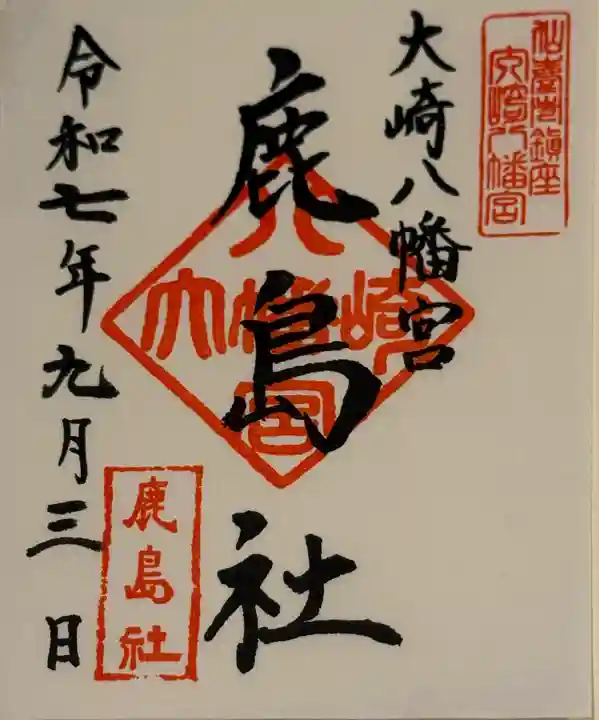 仙臺總鎮座
大崎八幡宮
大崎八幡宮
鹿島社
八
大幡崎
宮
鹿島社
令和七年九月三日